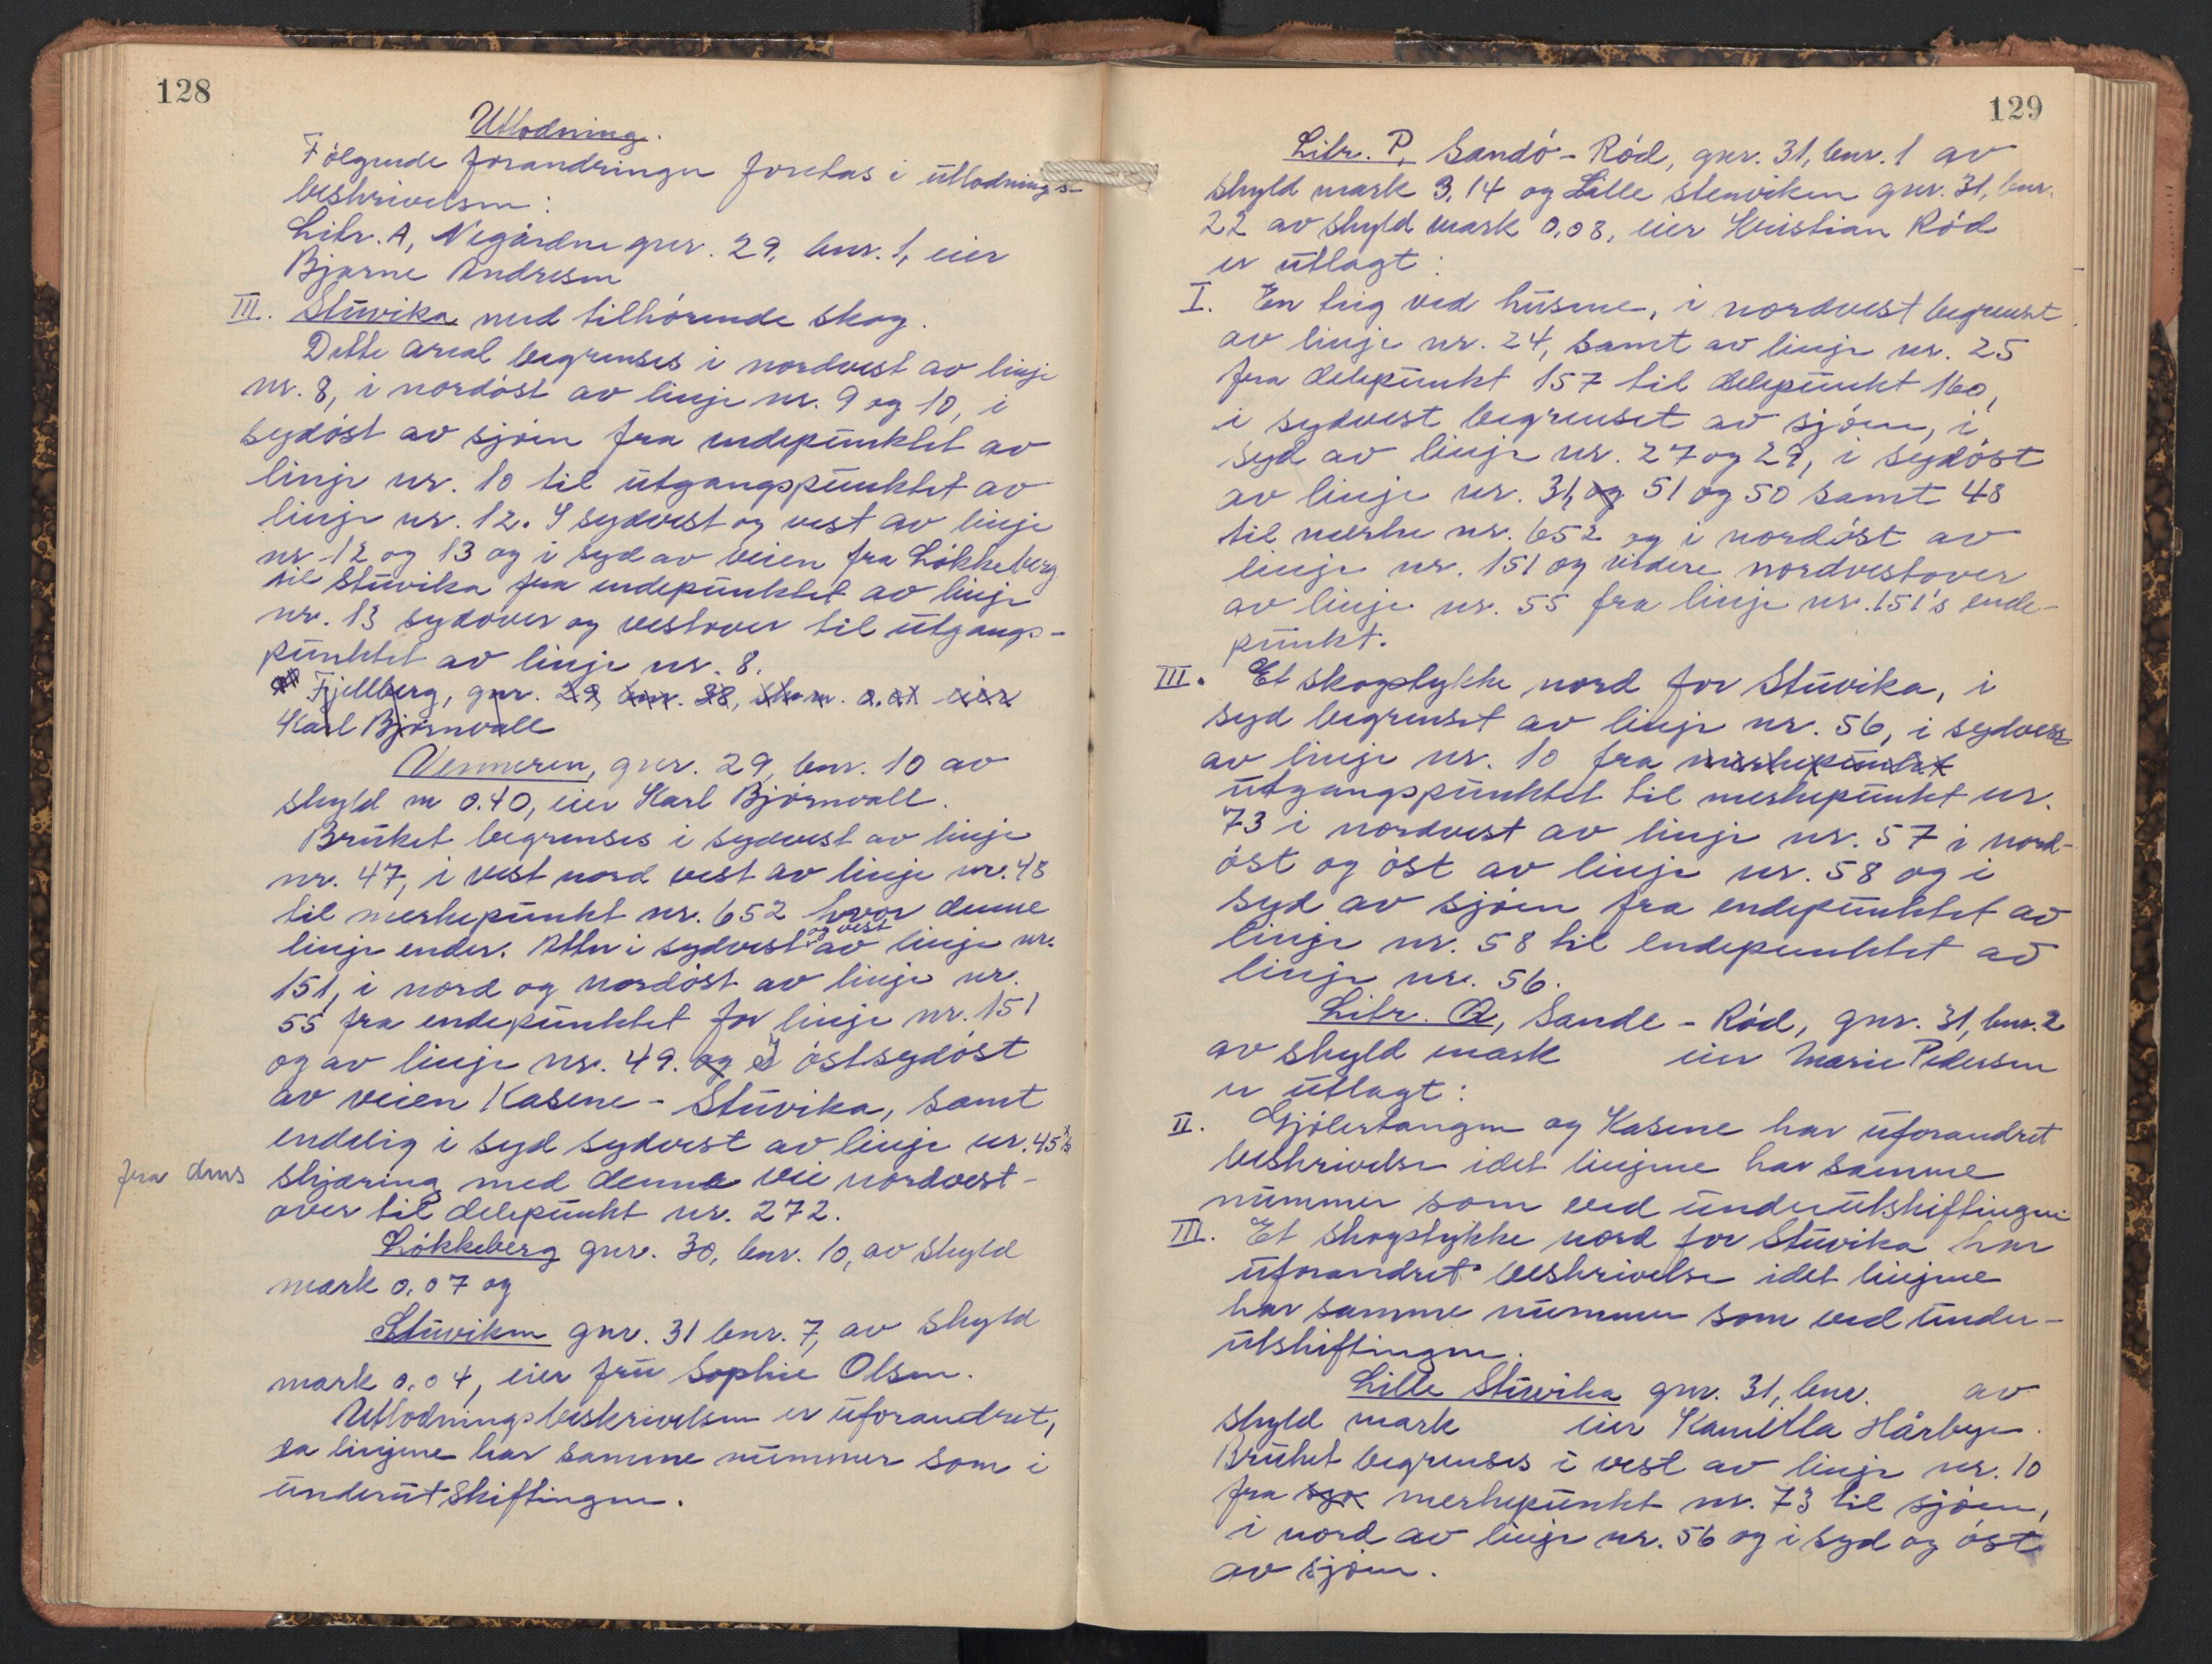 128
Utlodning.
Følgende forandringer foretas i utlodnings-
beskrivelsen:
Litr. A, Negårdne gnr. 29, bnr. 1, eier
Bjarne Andresen
III. Stuvika med tilhørende skog.
Dette areal begrenses i nordvest av linje
nr. 8, i nordöst av linje nr. 9 og 10, i
sydöst av sjöen fra endepunktet av
linje nr. 10 til utgangspunktet av
linje nr. 12. I sydvest og vest av linje
nr. 12 og 13 og i syd av veien fra Lökkeberg
til Stuvika fra endepunktet av linje
nr. 13 sydover og vestover til utgangs-
punktet av linje nr. 8.
Fjellberg, gnr. 29, bnr. 38, sk. m. 0.01 eier
Karl Björnvall
Venneren, gnr. 29, bnr. 10 av
skyld m 0.40, eier Karl Björnvall.
Bruket begrenses i sydvest av linje
nr. 47, i vest nord vest av linje nr. 48
til merkepunkt nr. 652 hvor denne
linje ender. Atter i sydvest og vest av linje nr.
151, i nord og nordöst av linje nr.
55 fra endepunktet for linje nr. 151
og av linje nr. 49. og I östsydöst
av veien Kasene - Stuvika, samt
endelig i syd sydvest av linje nr. 45's
fra dens skjæring med denne vei nordvest-
over til delepunkt nr. 272.
Lökkeberg gnr. 30, bnr. 10, av skyld
mark 0.07 og
Stuviken gnr. 31 bnr. 7, av skyld
mark 0.04, eier fru Sophie Olsen.
Utlodningsbeskrivelsen er uforandret,
da linjene har samme nummer som i
underutskiftingen.
129
Litr. P, Sandö - Röd, gnr. 31, bnr. 1 av
skyld mark 3,14 og Lille Stenviken gnr. 31, bnr.
22 av skyld mark 0,08, eier Kristian Röd
er utlagt:
I. En teig ved husene, i nordvest begrenset
av linje nr. 24, samt av linje nr. 25
fra delepunkt 157 til delepunkt 160,
i sydvest begrenset av sjöen, i
syd av linje nr. 27 og 29, i sydöst
av linje nr. 31, og 51 og 50 samt 48
til merke nr. 652 og i nordöst av
linje nr. 151 og videre nordvestover
av linje nr. 55 fra linje nr. 151's ende-
punkt.
III. Et skogstykke nord for Stuvika, i
syd begrenset av linje nr. 56, i sydvest
av linje nr. 10 fra merkepunktet
utgangspunktet til merkepunkt nr.
73 i nordvest av linje nr. 57 i nord-
öst og öst av linje nr. 58 og i
syd av sjöen fra endepunktet av
linje nr. 58 til endepunktet av
linje nr. 56.
Litr. Q, Sande - Röd, gnr. 31, bnr. 2
av skyld mark eier Marie Pedersen
er utlagt:
II. Gjölertangen og Kasene har uforandret
beskrivelse idet linjene har samme
nummer som ved underutskiftingen
III. Et skogstykke nord for Stuvika har
uforandret beskrivelse idet linjene
har samme nummer som ved under-
utskiftingen.
Lille Stuvika gnr. 31, bnr. av
skyld mark eier Kamilla Hårbye.
Bruket begrenses i vest av linje nr. 10
fra merkepunkt nr. 73 til sjöen,
i nord av linje nr. 56 og i syd og öst
av sjöen.